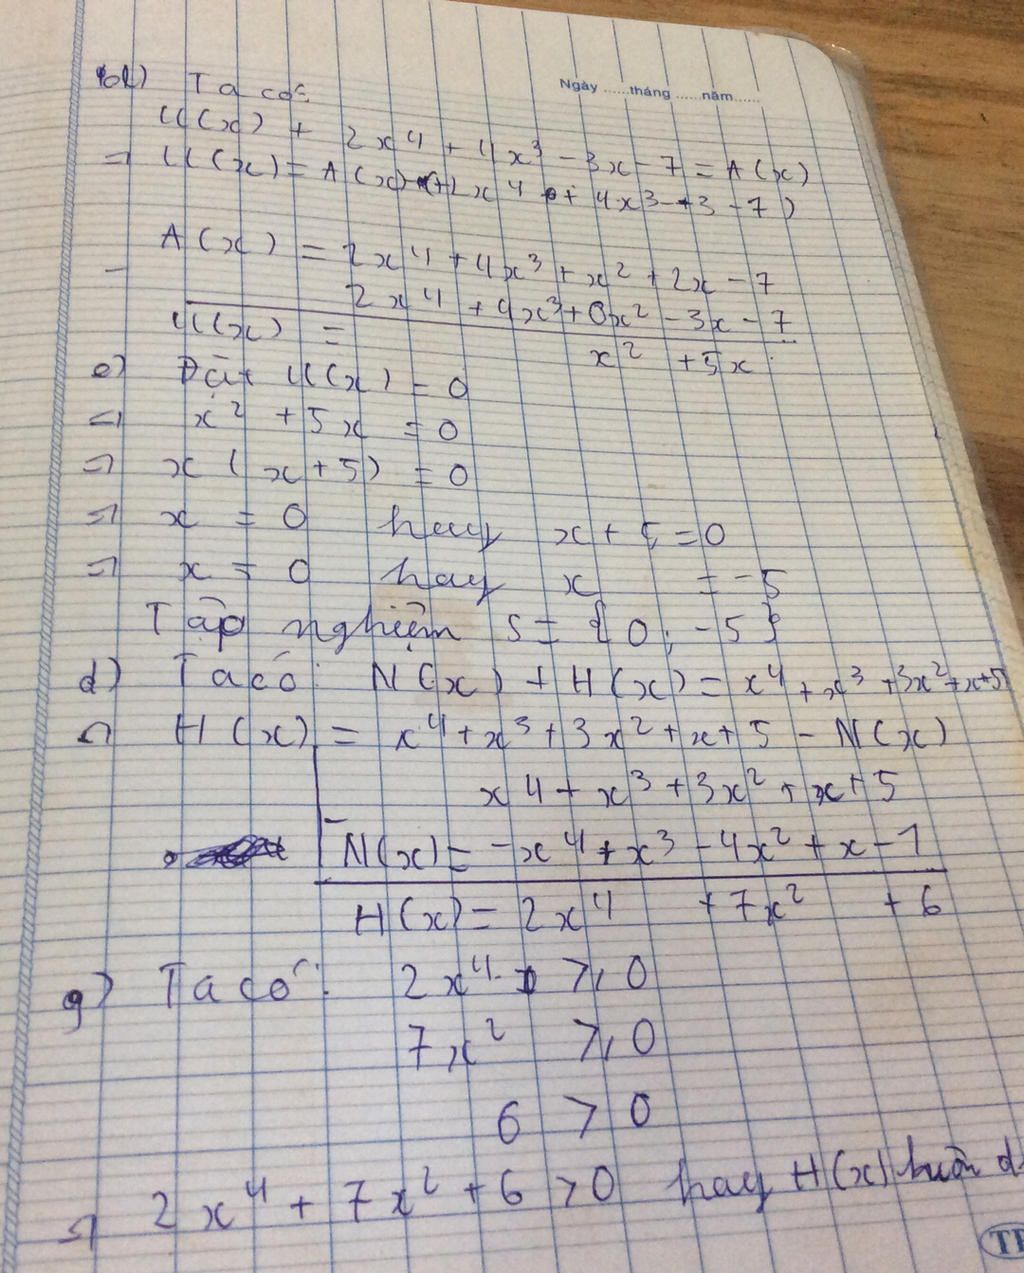 Ngày ......tháng ......năm......
d) Ta có:
U(x) + 2x⁴ + 4x³ - 3x - 7 = A(x)
=> U(x) = A(x) - (+2x⁴ + 4x³ - 3 - 7)
A(x) = 2x⁴ + 4x³ + x² + 2x - 7
- 2x⁴ + 4x³ + 0x² - 3x - 7
U(x) = x² + 5x
e) Đặt U(x) = 0
=> x² + 5x = 0
=> x(x+5) = 0
=> x = 0 hay x + 5 = 0
=> x = 0 hay x = -5
Tập nghiệm S = {0; -5}
d) Ta có: N(x) + H(x) = x⁴ + x³ + 3x² + x + 5
=> H(x) = x⁴ + x³ + 3x² + x + 5 - N(x)
x⁴ + x³ + 3x² + x + 5
- N(x) = -x⁴ + x³ - 4x² + x - 1
H(x) = 2x⁴ + 7x² + 6
g) Ta có: 2x⁴ ⩾ 0
7x² ⩾ 0
6 > 0
=> 2x⁴ + 7x² + 6 > 0 hay H(x) luôn d